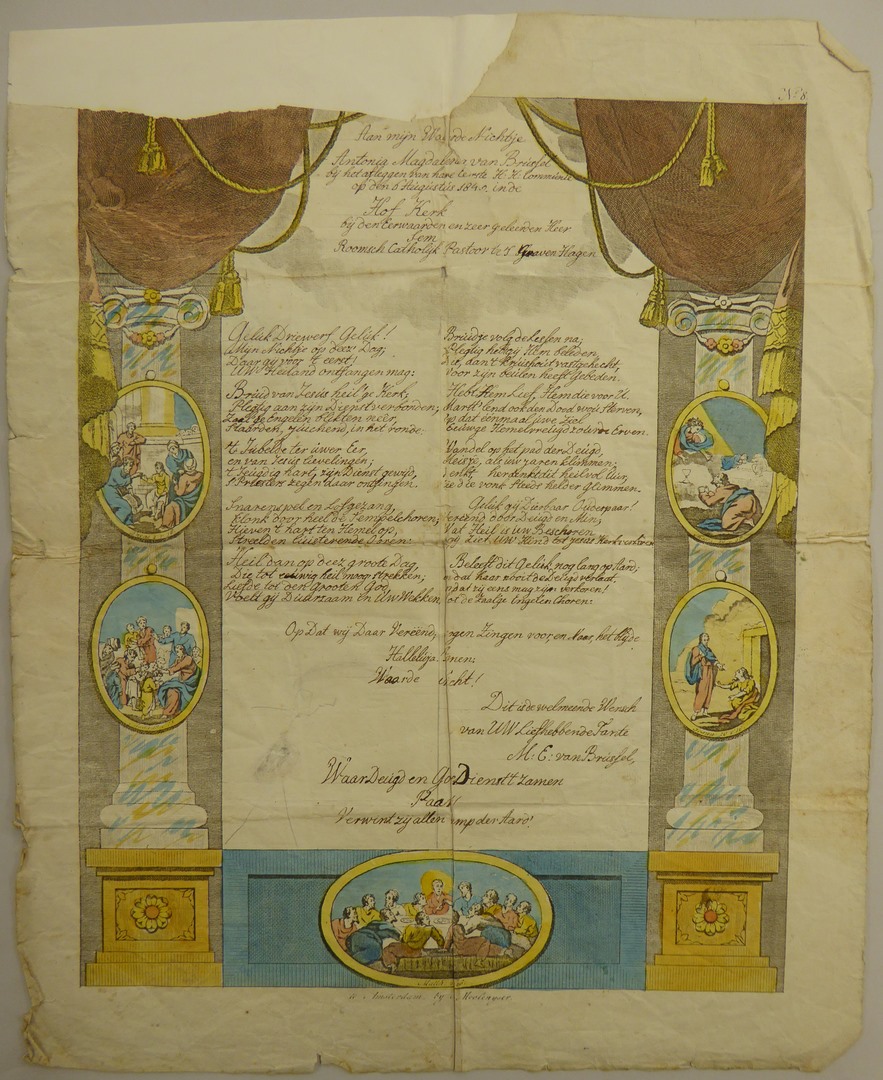 N.º 8.
Aan mijn Waarde Nichtje
Antonia Magdalena van Brussel
bij het afleggen van hare eerste H. H. Communie
op den Augustus 184 in de
Hof Kerk
bij den Eerwaarden en zeer geleerden Heer
Roomsch Catholijk Pastoor te 's Graven Hagen
Geluk Driewerf Geluk!
Mijn Nichtje op deez' Dag;
Daar gy voor 't eerst!
UW Heiland ontfangen mag:
Bruid van Jesus heil'ge Kerk;
Plegtig aan zyn Dienst verbonden;
Engelen blikten neer,
juichend, in het ronde
't Jubelde ter uwer Eer,
en van Jesus lievelingen;
't Jeugdig hart, zijn Dienst gewijd,
's Priesters zegen daar ontfingen.
Snarenspel en Lofgezang,
Klonk door heel de Tempelchoren;
Hieven 't hart ten Hemel op,
Streelden luisterende Ooren:
Heil dan op deez groote Dag,
Die tot eeuwig heil moog strekken;
Liefde tot den Grooten God
Voelt gy Duurzaam in UW Wekken
Bruidje volg de lessen na;
Plegtig hebt gij Hem beleden,
dan 't Kruishout vastgehecht,
Voor zijn beulen heeft gebeden.
Hebt Hem Lief, Hem die voor U.
ook den Dood wou Sterven,
dat eenmaal uwe Ziel
Eeuwige Hemelvreugd zoude Erven.
Wandel op het pad der Deugd,
als uw jaren klimmen;
Herdenkt dit heilvol uur,
die vonk steeds helder glimmen.
Geluk gij Dierbaar Ouderpaar!
Vereend door Deugd en Min,
Wat Heil is uw Beschoren,
gij ziet UW Kind tot Jesus Kerk
Beleeft dit Geluk nog lang op Aard;
dat haar nooit de Deugd verlaat,
dat zij eens mag zijn verkoren!
de zaalge Engelen Choren:
Op Dat wij Daar Vereend, ogen Zingen voor en Naar, het blyde
Halleluja enen:
Waarde icht!
Dit is de welmeende Wensch
van UW Liefhebbende Tante
M: E: van Brussel,
Waar Deugd en God Dienst t zamen
Paar!
Verwint zy allen amp der Aard!
te Amsterdam, by Moolenyzer.